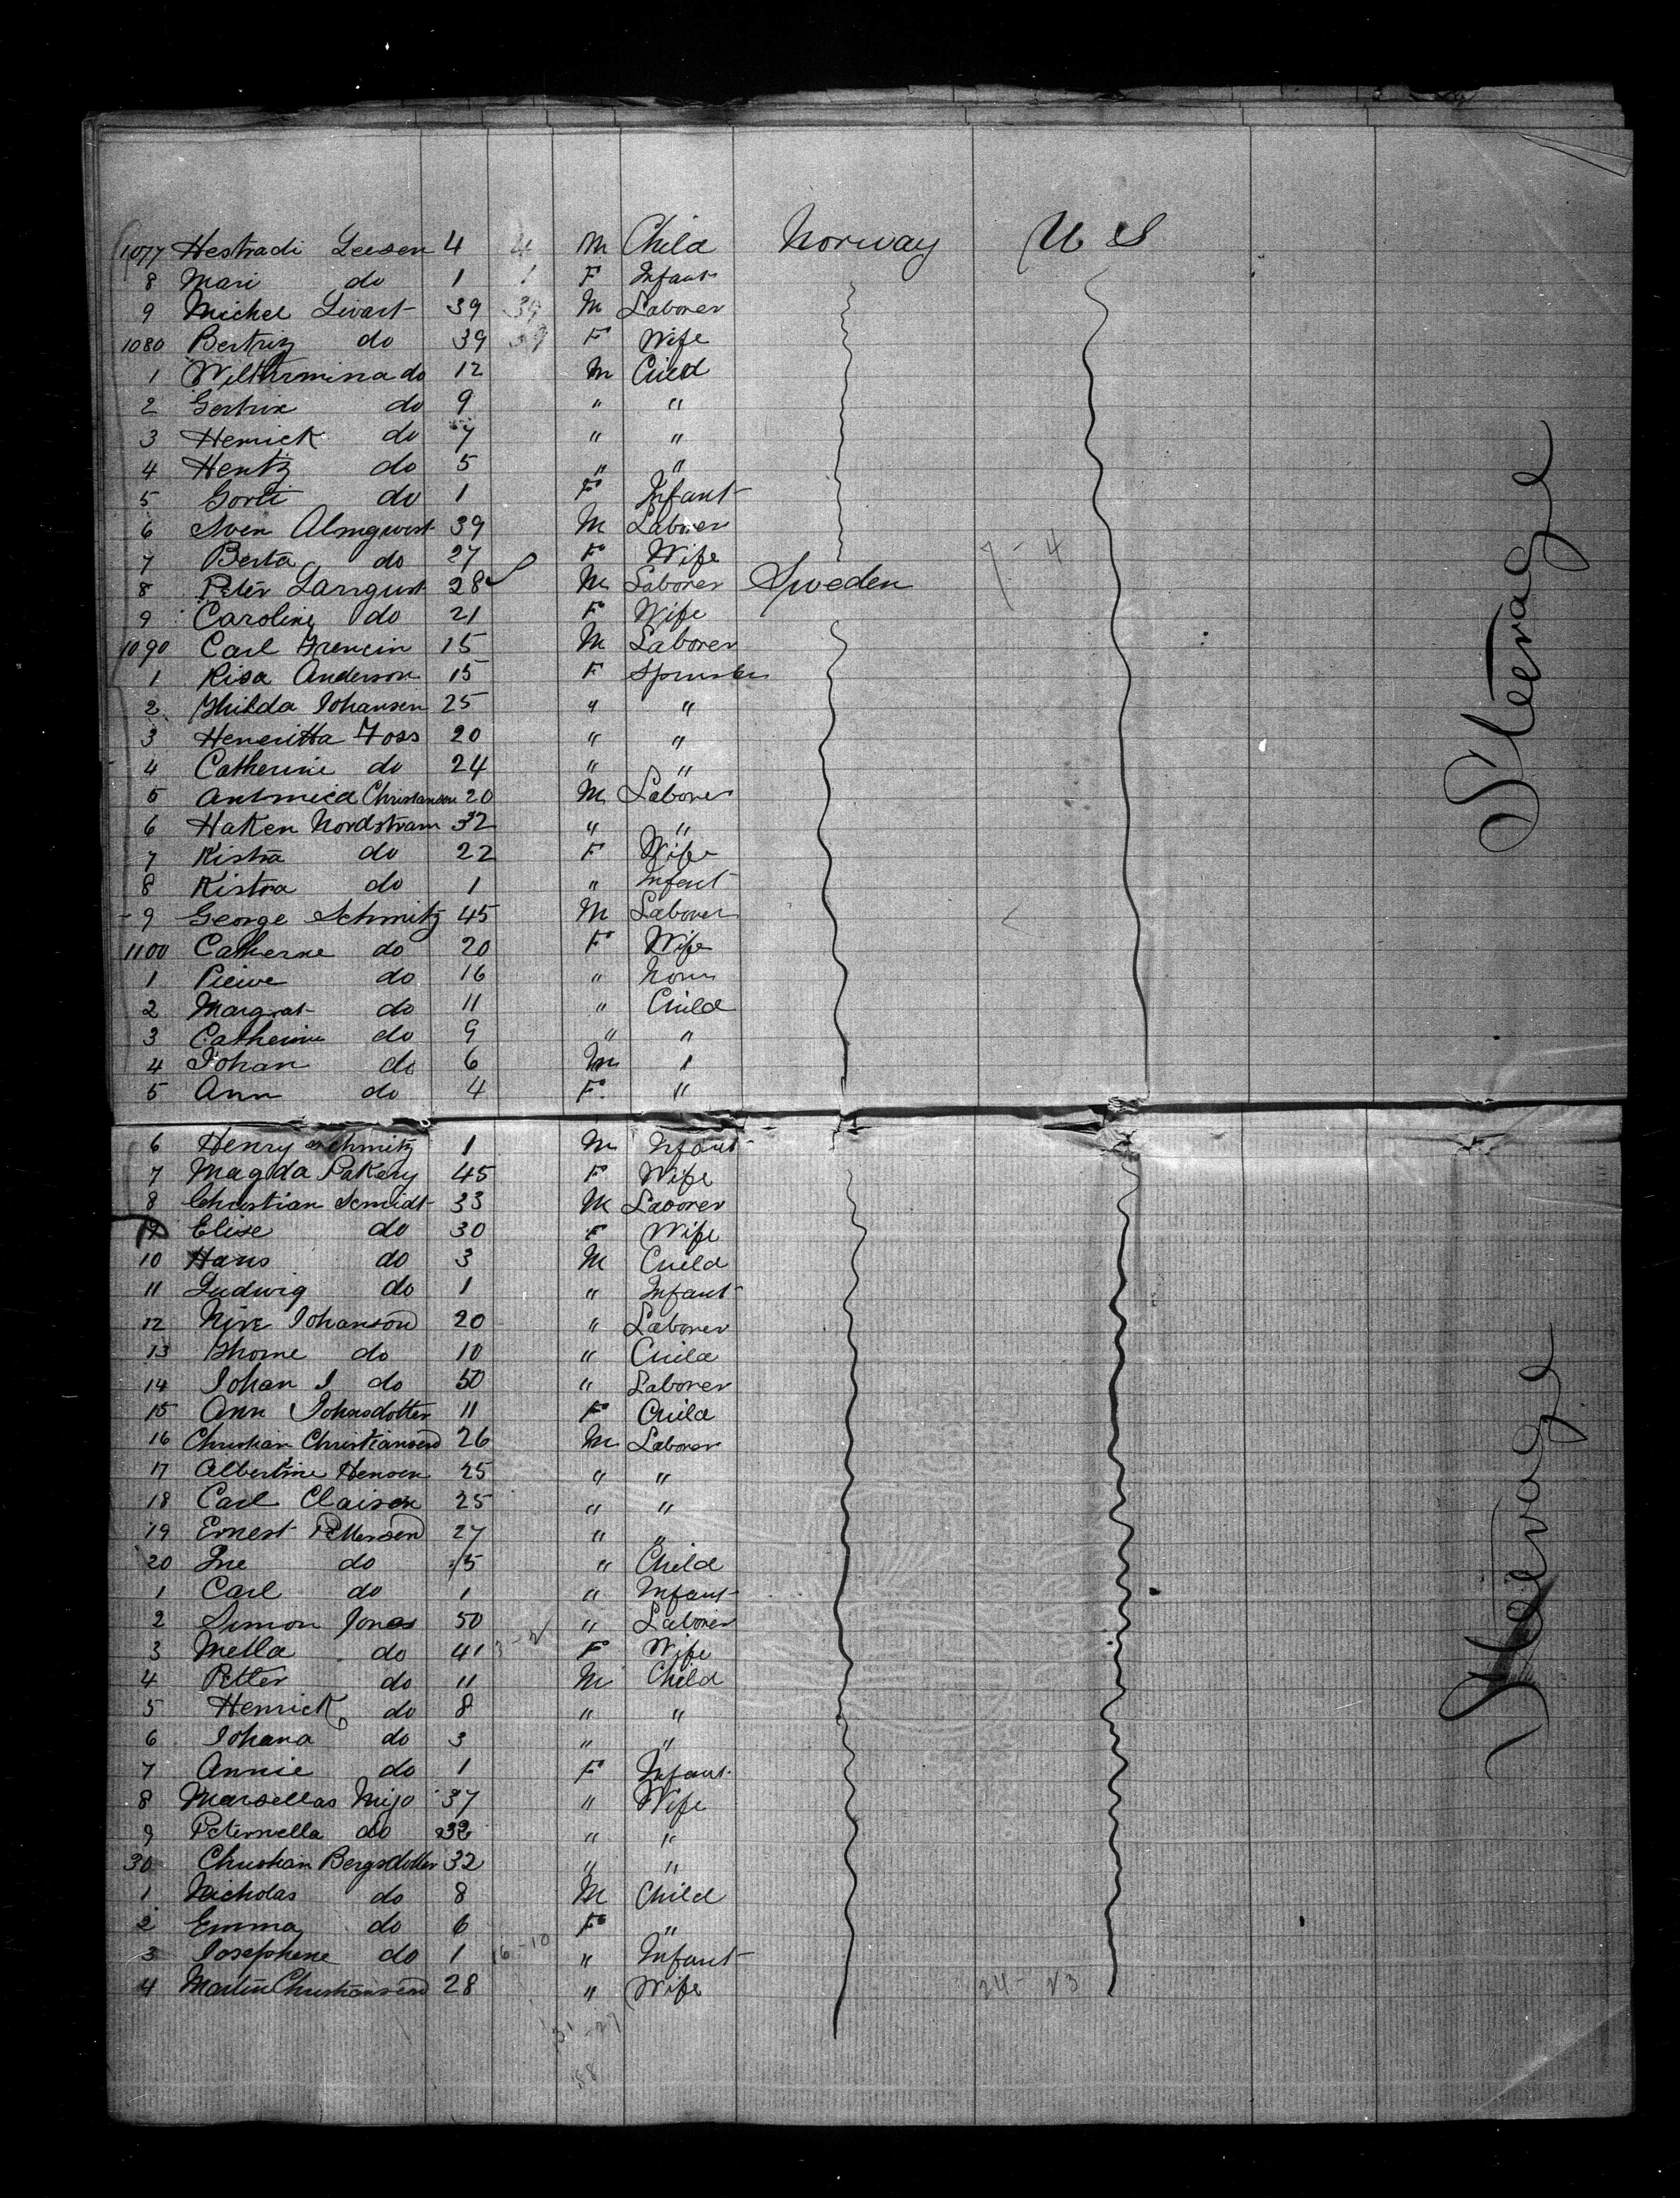 1077 Hestradi Leesen 4 4 M Child Norway U S
8 Mari do 1 1 F Infant
9 Michel Livart 39 39 M Laborer
1080 Bertriz do 39 39 F Wife
1 Wilthrmina do 12 M Child
2 Gertrix do 9 " "
3 Henrick do 7 " "
4 Hentz do 5 " "
5 do 1 F Infant
6 Sven Almqwist 39 M Laborer
7 Berta do 27 F Wife 7 - 4
8 Peter Larrgust 28 M Laborer Sweden
9 Caroline do 21 F Wife
1090 Carl Frencin 15 M Laborer
1 Risa Anderson 15 F Spinster
2 Ghilda Johansen 25 " "
3 Heneritta Foss 20 " "
4 Catherine do 24 " "
5 Christansen 20 M Laborer
6 Haken Nordstram 32 " "
7 Kistra do 22 F Wife
8 Kistra do 1 " Infant
9 George Schmitz 45 M Laborer
1100 Catherne do 20 F Wife
1 do 16 " None
2 Margrat do 11 " Child
3 Catherine do 9 " "
4 Johan do 6 M "
5 Ann do 4 F "
6 Henry Schmitz 1 M Infant
7 Magda Pakery 45 F Wife
8 Christian Scmidt 33 M Laborer
9 Elise do 30 F Wife
10 Hans do 3 M Child
11 Ludwig do 1 " Infant
12 Johanson 20 " Laborer
13 do 10 " Child
14 Johan J do 50 " Laborer
15 Ann Johnsdotter 11 F Child
16 Christian Christiansen 26 M Laborer
17 Albertine Hensen 25 " "
18 Carl Claisen 25 " "
19 Ernest Pettersen 27 " "
20 Ine do 5 " Child
1 Carl do 1 " Infant
2 Simon Jonas 50 " Laborer
3 Mella do 41 F Wife
4 Petter do 11 M Child
5 Henrick do 8 " "
6 Johana do 3 " "
7 Annie do 1 F Infant
8 Marsellas Mijo 37 " Wife
9 Peternella do 32 " "
30 Christian Bergsdotter 32 " "
1 Nicholas do 8 M Child
2 Emma do 6 F "
3 Josephene do 1 16-10 " Infant
4 Martin Christiansen 28 " Wife 24-23
31-27
58
Steerage
Steerage